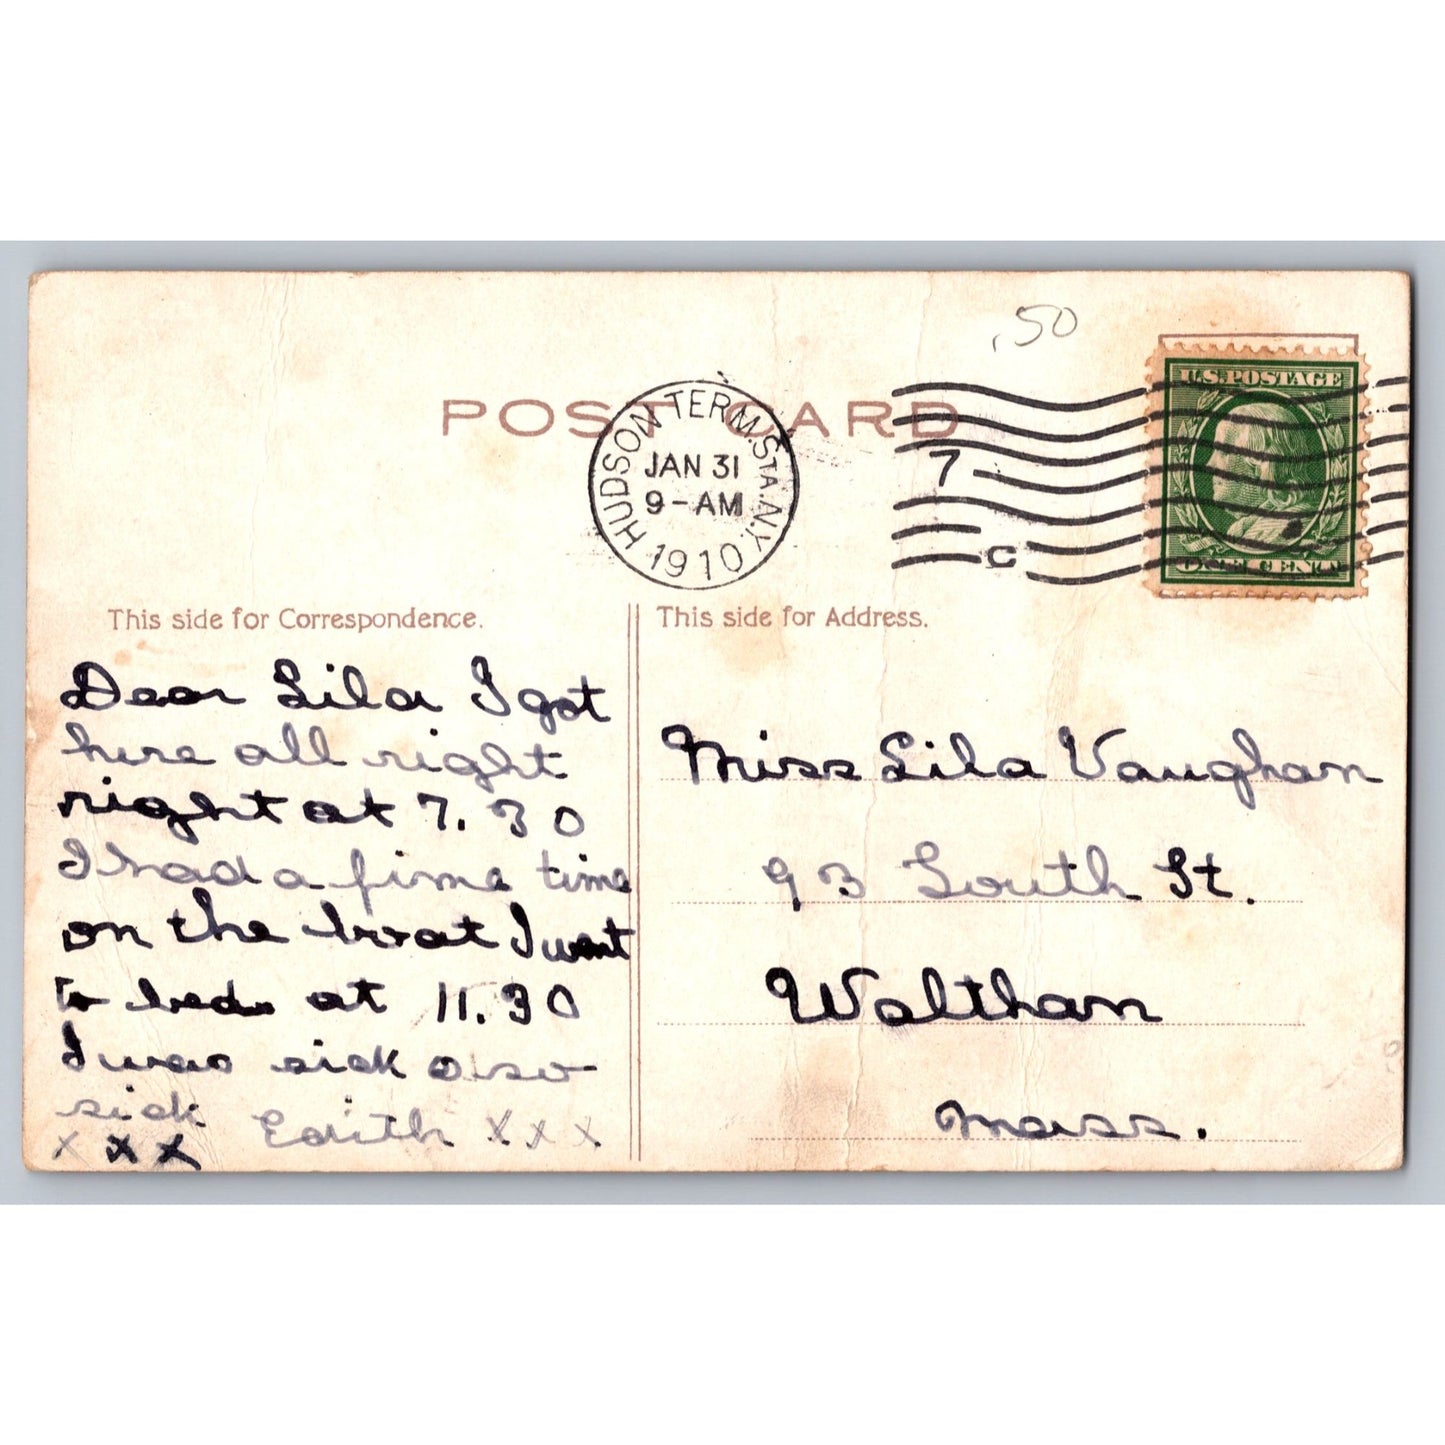 .50
POST CARD
HUDSON TERM. STA. N.Y.
JAN 31
9-AM
1910
7
C
U.S. POSTAGE
ONE CENT
This side for Correspondence.
Dear Lila I got
here all right
right at 7.30
I had a fime time
on the boat I went
to bed at 11.30
I was sick o so
sick Edith x x x
x x x
This side for Address.
Miss Lila Vaughan
93 South St.
Waltham
Mass.